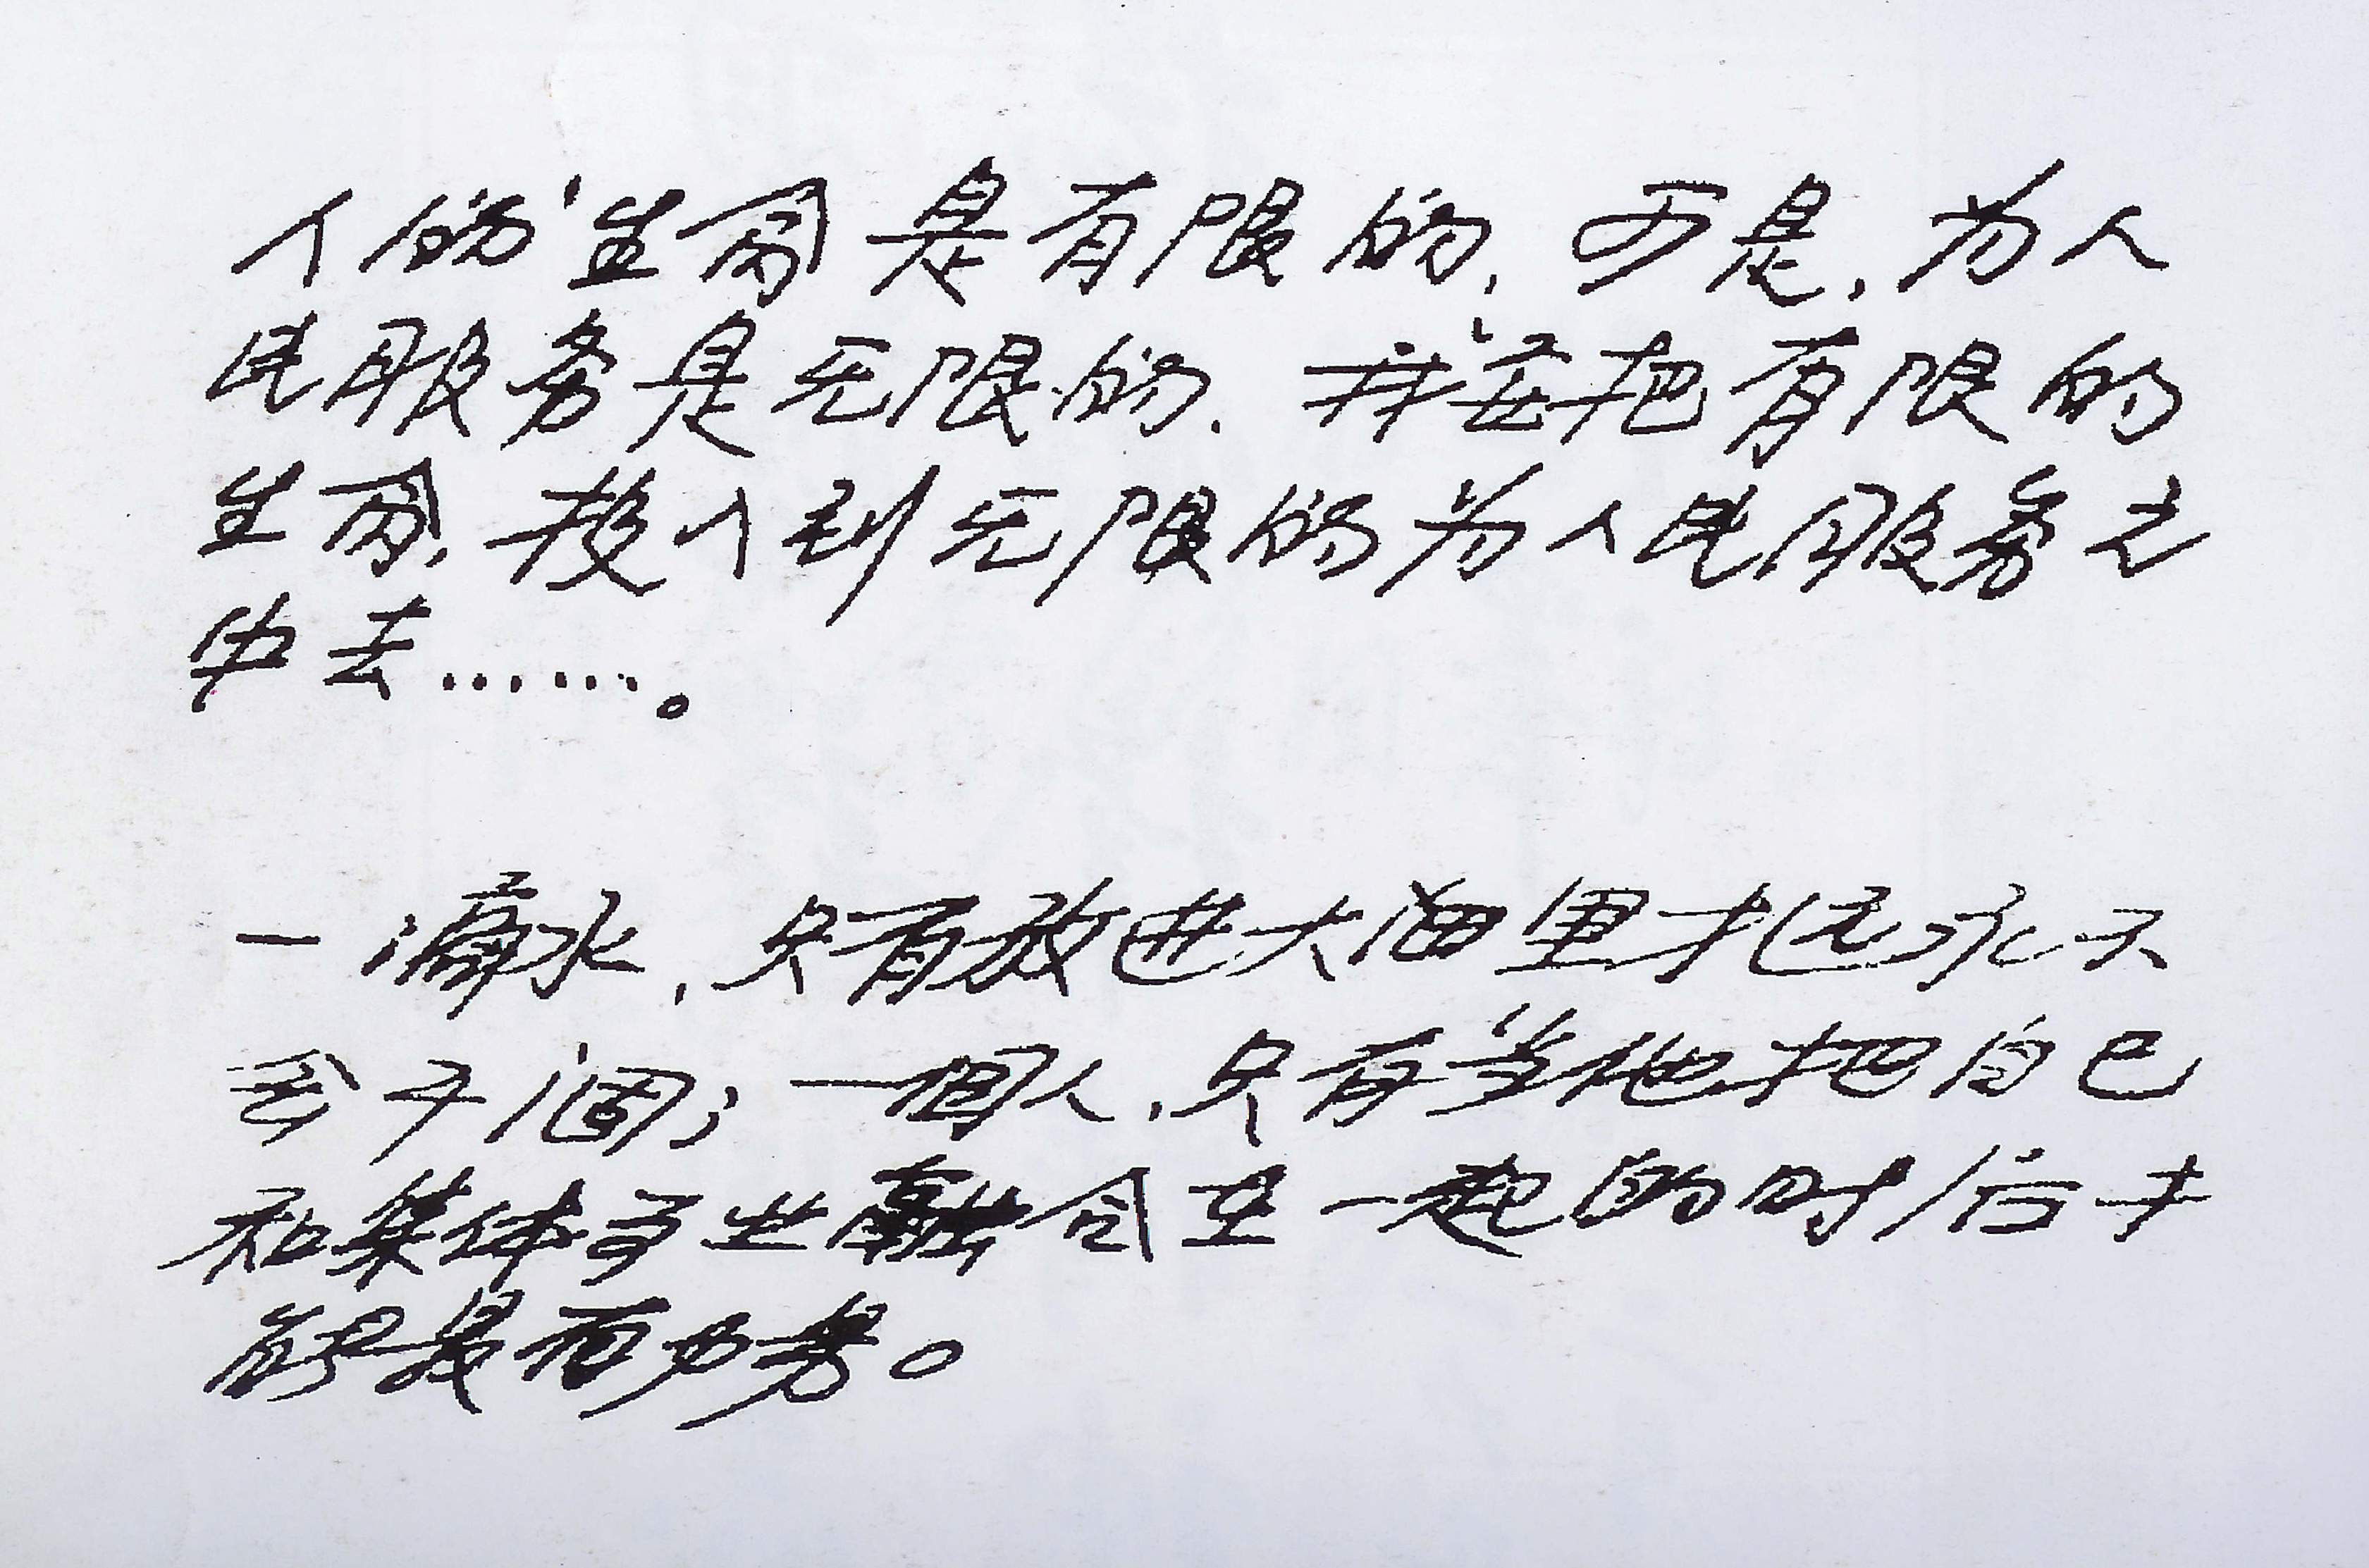 人的生命是有限的，可是，为人
民服务是无限的，我要把有限的
生命，投入到无限的为人民服务之
中去……。
一滴水，只有放进大海里才远永不
会干涸；一個人，只有当他把自己
和集体事业融合在一起的时候才
能最有力量。